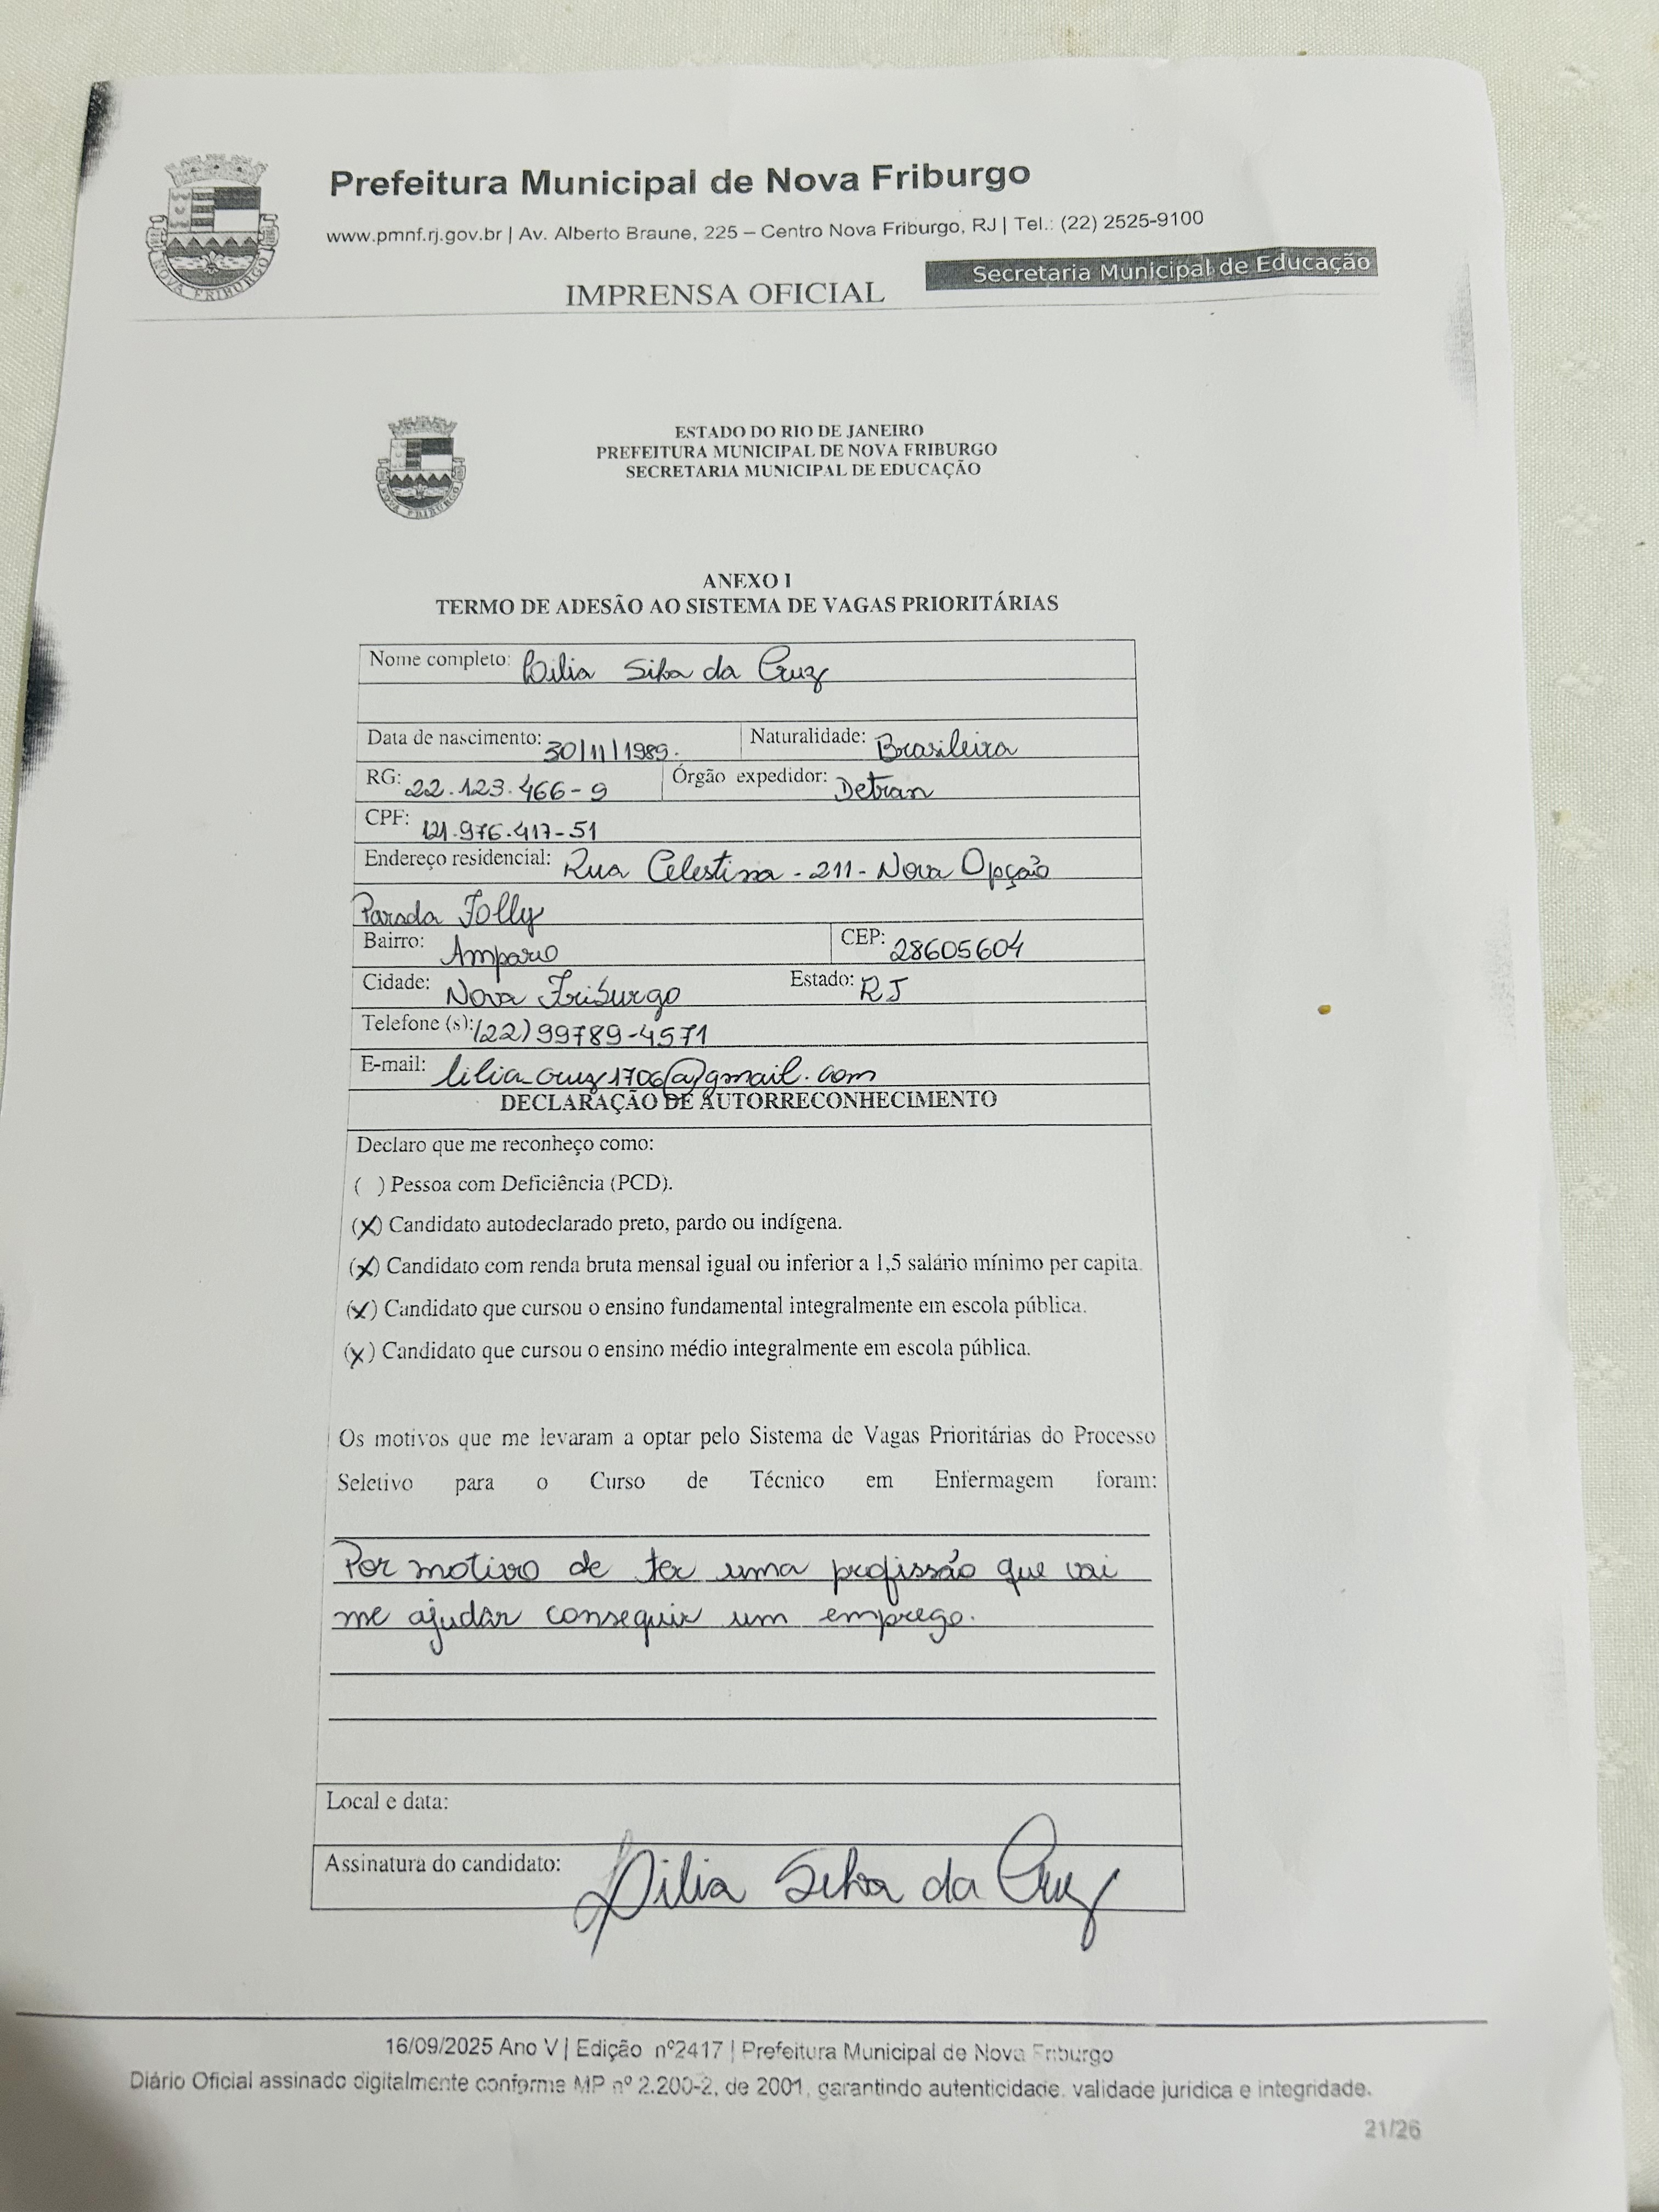 Prefeitura Municipal de Nova Friburgo
www.pmnf.rj.gov.br | Av. Alberto Braune, 225 – Centro Nova Friburgo, RJ | Tel.: (22) 2525-9100
Secretaria Municipal de Educação
IMPRENSA OFICIAL
NOVA FRIBURGO
ESTADO DO RIO DE JANEIRO
PREFEITURA MUNICIPAL DE NOVA FRIBURGO
SECRETARIA MUNICIPAL DE EDUCAÇÃO
NOVA FRIBURGO
ANEXO I
TERMO DE ADESÃO AO SISTEMA DE VAGAS PRIORITÁRIAS
Nome completo: Lilia Silva da Cruz
Data de nascimento: 30/11/1989. Naturalidade: Brasileira
RG: 22.123.466-9 Órgão expedidor: Detran
CPF: 121.976.417-51
Endereço residencial: Rua Celestina - 211 - Nova Opção
Parada Folly
Bairro: Amparo CEP: 28605604
Cidade: Nova Friburgo Estado: RJ
Telefone (s): (22) 99789-4571
E-mail: lilia_cruz1706@gmail.com
DECLARAÇÃO DE AUTORRECONHECIMENTO
Declaro que me reconheço como:
( ) Pessoa com Deficiência (PCD).
(X) Candidato autodeclarado preto, pardo ou indígena.
(X) Candidato com renda bruta mensal igual ou inferior a 1,5 salário mínimo per capita.
(X) Candidato que cursou o ensino fundamental integralmente em escola pública.
(X) Candidato que cursou o ensino médio integralmente em escola pública.
Os motivos que me levaram a optar pelo Sistema de Vagas Prioritárias do Processo
Seletivo para o Curso de Técnico em Enfermagem foram:
Por motivo de ter uma profissão que vai
me ajudar conseguir um emprego.
Local e data:
Assinatura do candidato: Lilia Silva da Cruz
16/09/2025 Ano V | Edição nº2417 | Prefeitura Municipal de Nova Friburgo
Diário Oficial assinado digitalmente conforme MP nº 2.200-2, de 2001, garantindo autenticidade, validade jurídica e integridade.
21/26